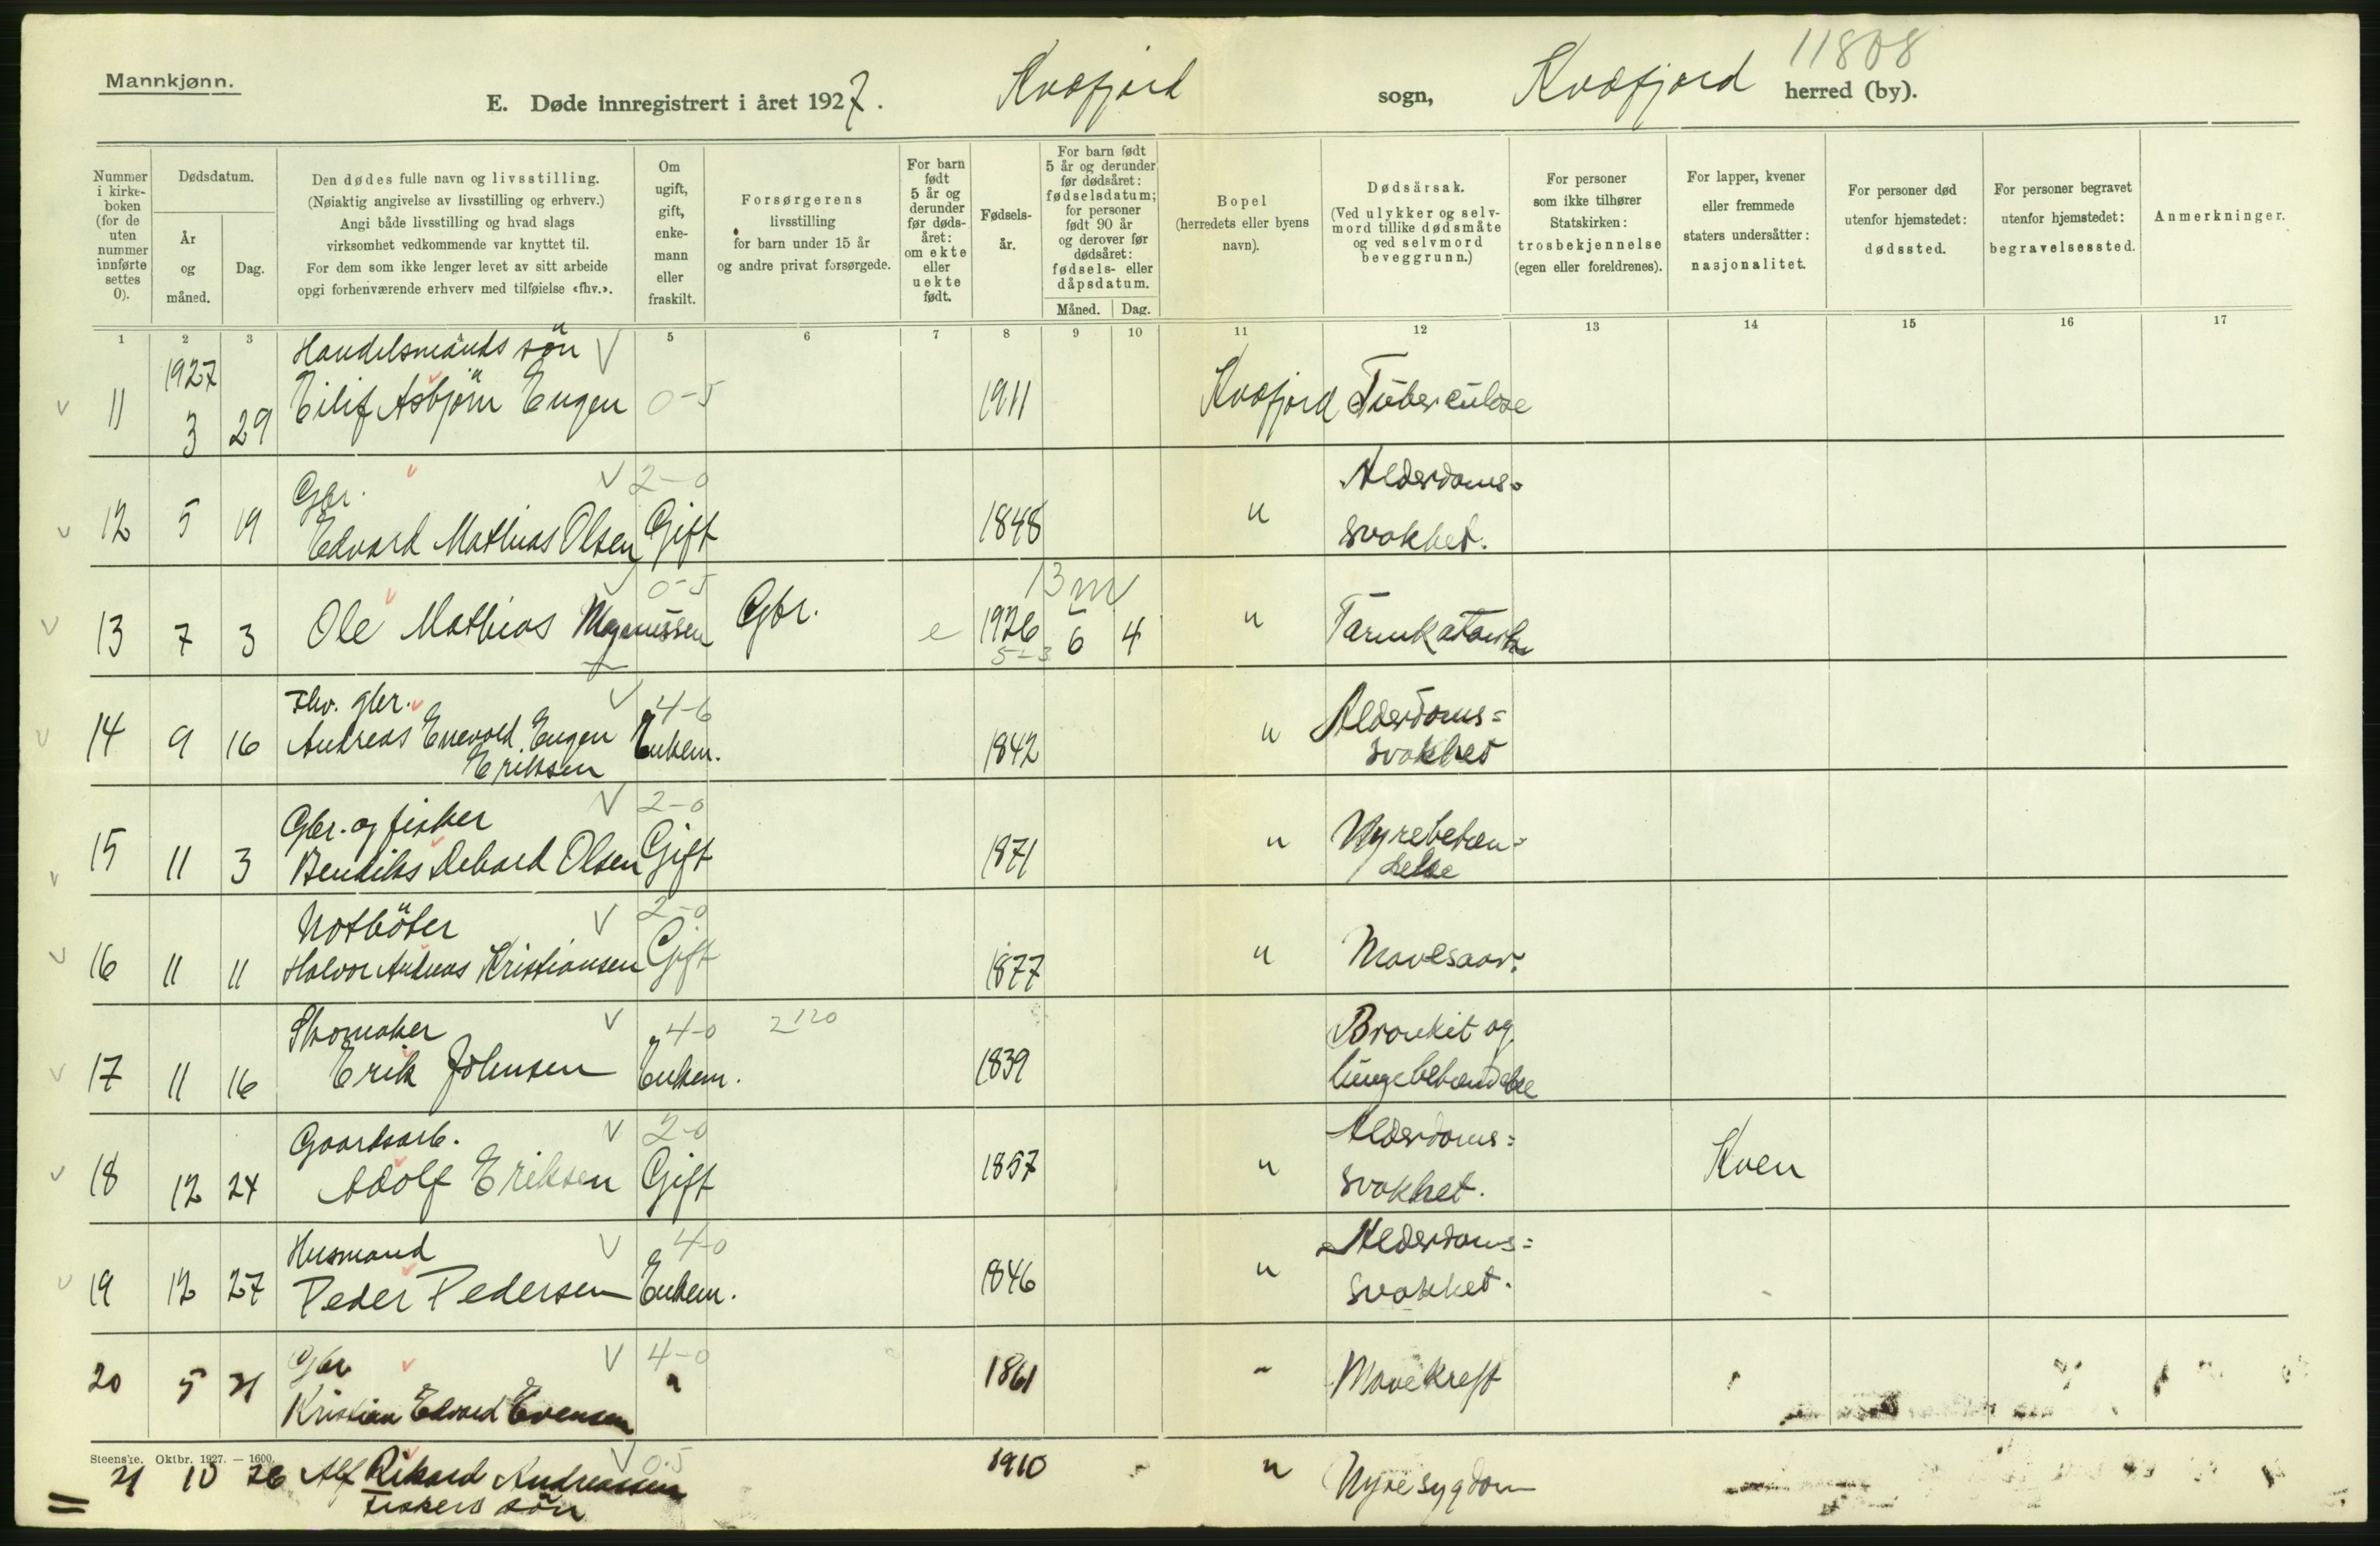 Mannkjønn.
E. Døde innregistrert i året 1927. Kvæfjord sogn, Kvæfjord herred (by).
11808
Nummer i kirke-boken (for de uten nummer innførte settes 0).
Dødsdatum.
År og måned.
Dag.
Den dødes fulle navn og livsstilling.
(Nøiaktig angivelse av livsstilling og erhverv.)
Angi både livsstilling og hvad slags
virksomhet vedkommende var knyttet til.
For dem som ikke lenger levet av sitt arbeide
opgi forhenværende erhverv med tilføielse «fhv.».
Om ugift, gift, enke-mann eller fraskilt.
Forsørgerens
livsstilling
for barn under 15 år
og andre privat forsørgede.
For barn født 5 år og derunder før døds-året: om ekte eller uekte født.
Fødsels-år.
For barn født 5 år og derunder før dødsåret: fødselsdatum; for personer født 90 år og derover før dødsåret: fødsels- eller dåpsdatum.
Måned. Dag.
Bopel
(herredets eller byens
navn).
Dødsårsak.
(Ved ulykker og selv-mord tillike dødsmåte og ved selvmord beveggrunn.)
For personer
som ikke tilhører
Statskirken:
trosbekjennelse
(egen eller foreldrenes).
For lapper, kvener
eller fremmede
staters undersåtter:
nasjonalitet.
For personer død
utenfor hjemstedet:
dødssted.
For personer begravet
utenfor hjemstedet:
begravelsessted.
Anmerkninger.
1 2 3 5 6 7 8 9 10 11 12 13 14 15 16 17
1927 Handelsmands sön
11 3 29 Eilif Asbjörn Eugen 0-5 1911 Kvæfjord Tuberculose
Gbr. 2-0 Alderdoms-
12 5 19 Edvard Mathias Olsen Gift 1848 " svakhet.
0-5 13 m
13 7 3 Ole Mathias Magnussen Gbr. e 1926 6 4 " Tarmkatarrh
5-3
Fhv. gbr. 4-6 Alderdoms=
14 9 16 Andreas Enevold Eugen Enkem. 1842 " svakhet
Eriksen
Gbr. og fisker 2-0 Nyrebeten=
15 11 3 Bendiks Dehard Olsen Gift 1871 " delse
Notböter 2-0
16 11 11 Halvor Andreas Kristiansen Gift 1877 " Mavesaar.
Skomaker 4-0 2120 Bronkit og
17 11 16 Erik Johnsen Enkem. 1839 lungebetændelse
Gaardsarb. 2-0 Alderdoms=
18 12 24 Adolf Eriksen Gift 1857 " svakhet. Kven
Husmand 4-0 Alderdoms=
19 12 27 Peder Pedersen Enkem. 1846 " svakhet.
Gbr 4-0
20 5 21 Kristian Edvard Evensen " 1861 " Mavekreft
Steenske. Oktbr. 1927. — 1600.
21 10 26 Alf Rikard Andreassen 0-5 1910 " Nyresygdom
Fiskers sön